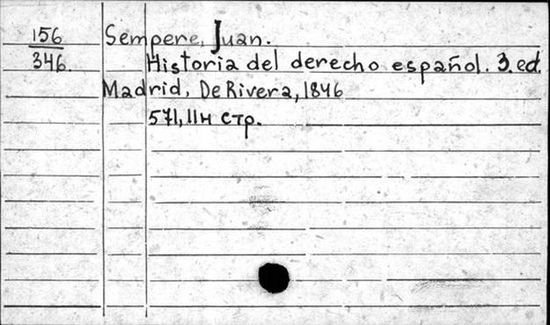 156 Sempere, Juan.
346. Historia del derecho español. 3. ed.
Madrid, De Rivera, 1846
571, IIн стр.